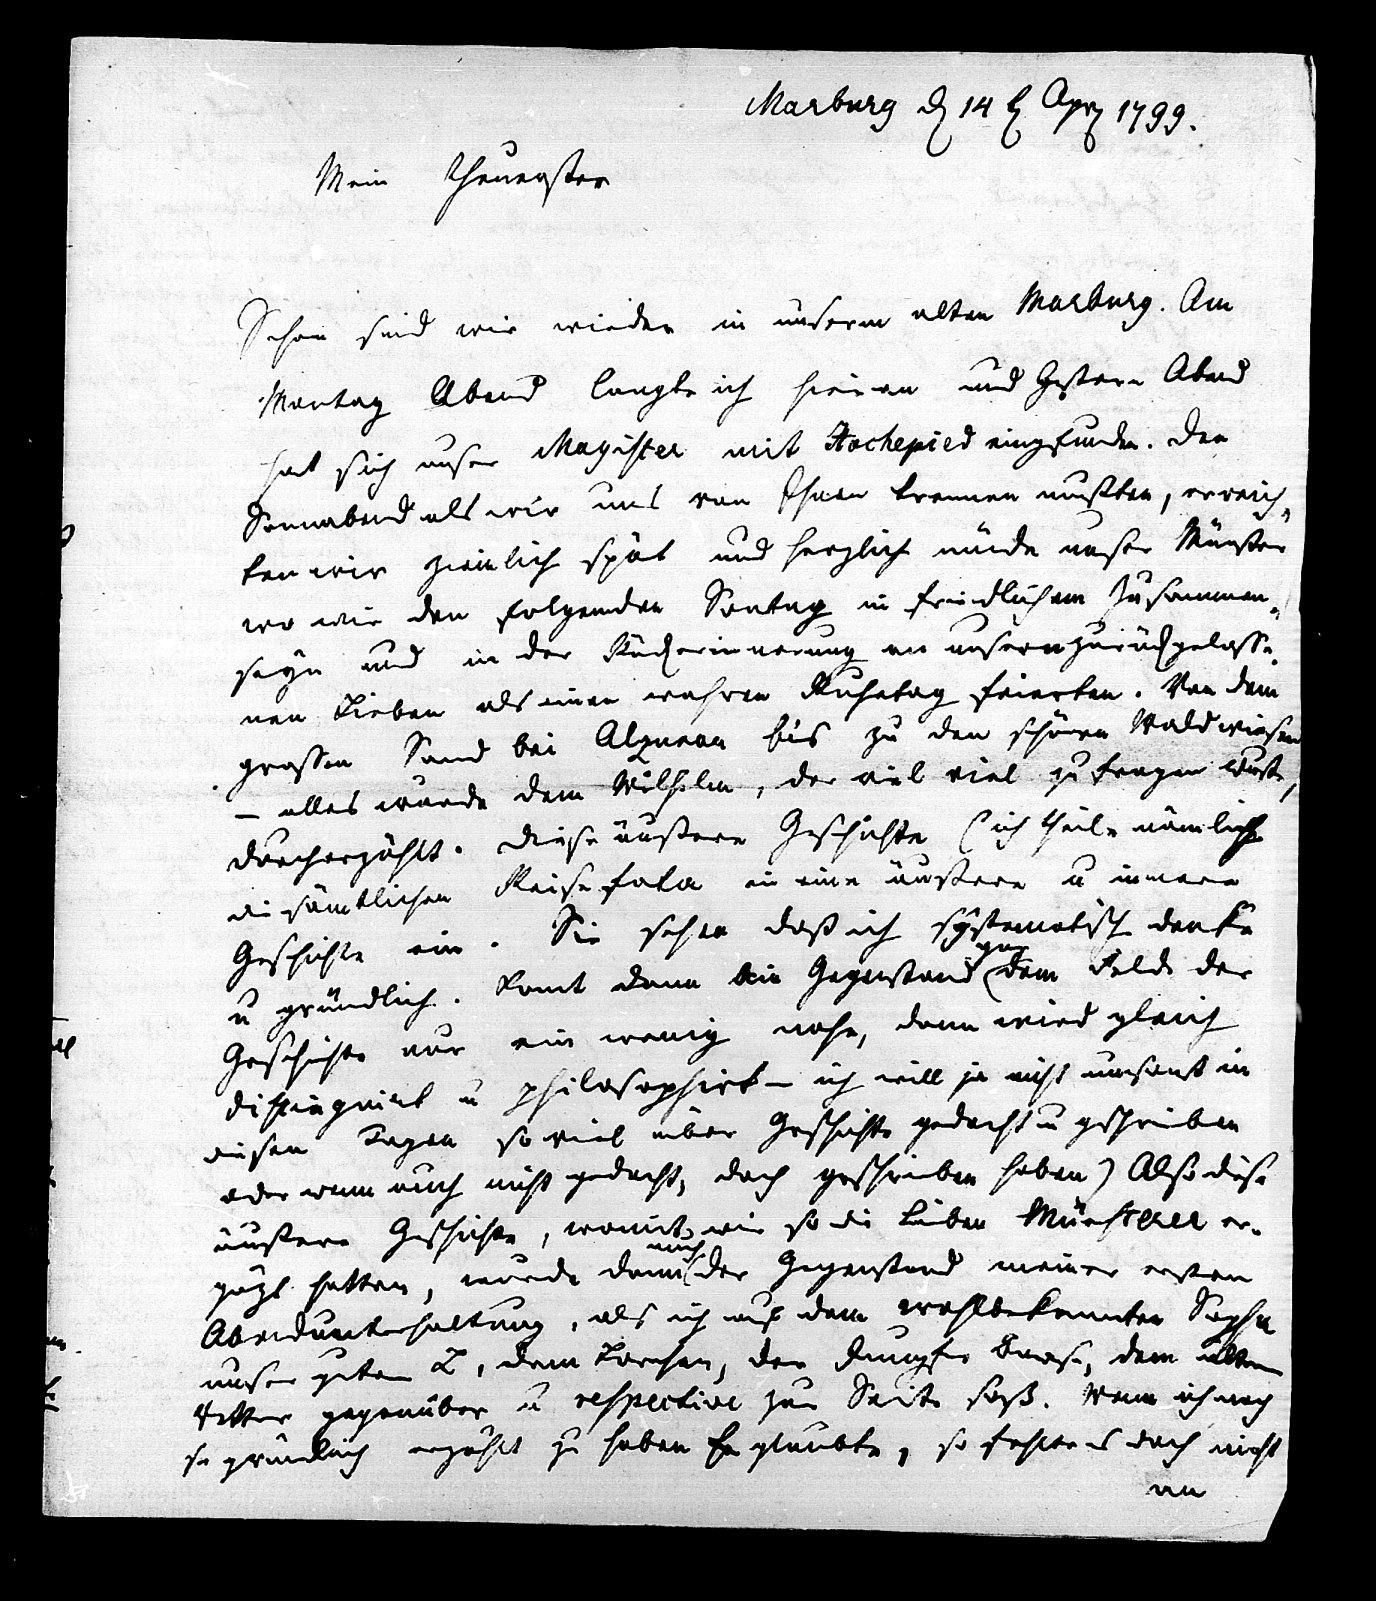 Marburg d 14 t Apr 1799.
Mein Theuerster
Schon sind wir wieder in unserm alten Marburg. Am
Montag Abend langte ich hier an und Gestern Abend
hat sich unser Magister mit Hochepied eingefunden. Den
Sonnabend als wir uns von Ihnen trennen mußten, erreich„
ten wir ziemlich spät und herzlich müde unser Münster
wo wir den folgenden Sontag in friedlichem Zusammen„
seyn und in der Rückerinnerung an unsern zurückgelasse„
nen Lieben als einen wahren Ruhetag feierten. Von dem
grossen Sand bei Alzenau bis zu den schönen Waldwiesen
– alles wurde dem Wilhelm, der viel viel zu fragen wuste,
durcherzählt. Diese äussere Geschichte (ich theile nämlich
die sämtlichen Reisefata in eine äussere u innere
Geschichte ein. Sie sehen daß ich systematisch denke
u gründlich. Komt dann ein Gegenstand gar dem Felde der
Geschichte nur ein wenig nahe, dann wird gleich
distinguirt u philosophirt – ich will ja nicht umsonst in
diesen Tagen so viel über Geschichte gedacht u geschrieben
oder wenn auch nicht gedacht, doch geschrieben haben) Also diese
äussere Geschichte, womit wir so die lieben Münsterer er„
gözt hatten, wurde dann auch der Gegenstand meiner ersten
Abendunterhaltung, als ich auf dem wohlbekannten Sopha
unser guten L, dem Lorchen, der Jungfer, dem alten
Vetter gegenüber u respective zur Seite saß. Wenn ich noch
so gründlich erzählt zu haben glaubte, so fehlte es doch nicht
an